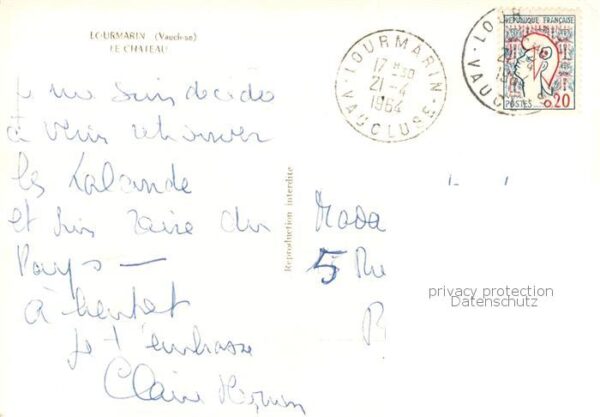 LOURMARIN (Vaucluse)
LE CHATEAU
me suis décidé
à venir retrouver
les Lalande
et suis
Pays —
à bientot
je t'embrasse
Claire
Reproduction interdite
LOURMARIN
17 H30
21-4
1964
VAUCLUSE
LOUR
21
VAUCLUS
REPUBLIQUE FRANÇAISE
POSTES
0,20
5 Rue
privacy protection
Datenschutz